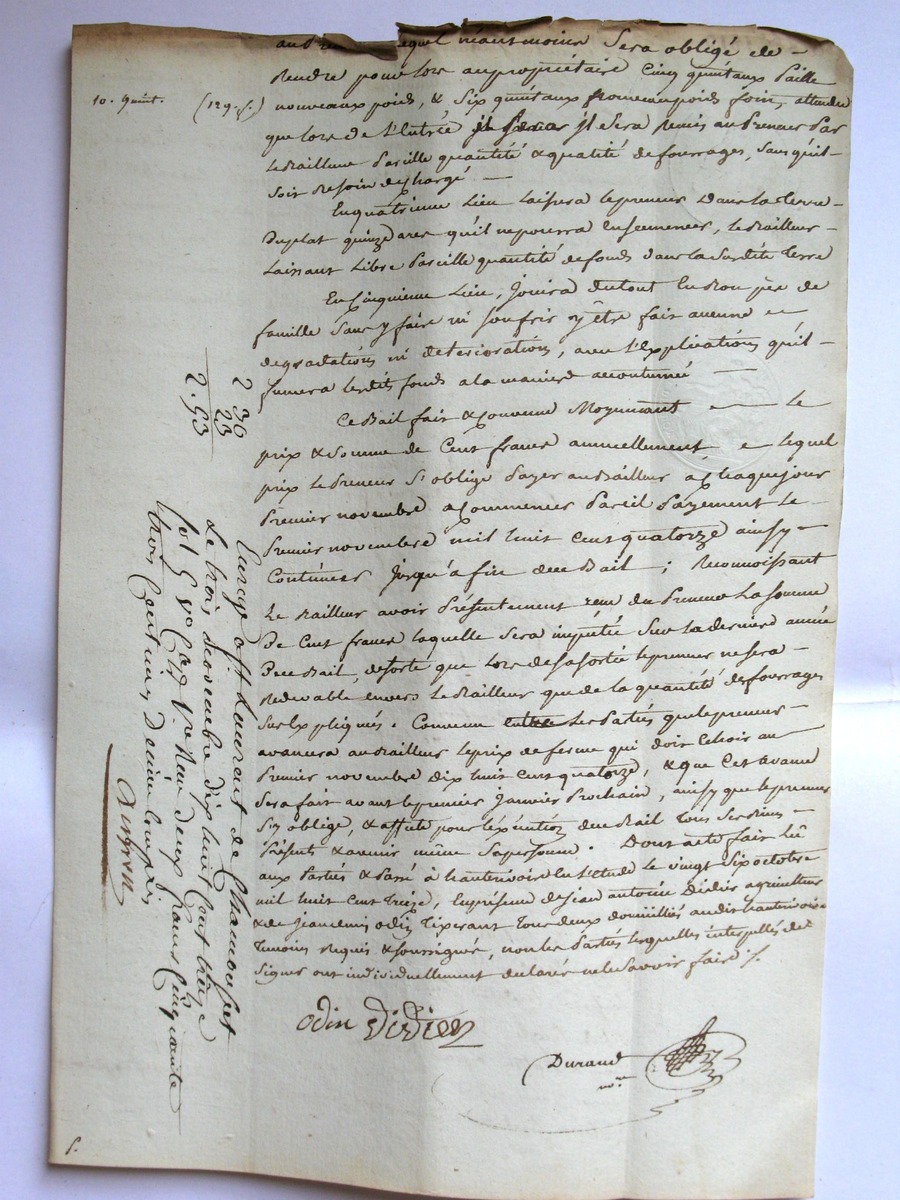 lequel néantmoins Sera obligé de -
Rendre pour lors au propriétaire Cinq quintaux Paille
10. quint.
nouveaux poids, & Six quintaux foin, attendu
que lors de l'entrée il Sera Remis au Preneur Par
le Bailleur Pareille quantité & qualité de fourrages, Sans qu'il -
Soit Besoin de Charge -
En quatrieme Lieu Laissera le preneur Dans la terre -
Du plat quinze ares qu'il ne pourra Ensemencer, le Bailleur -
Laissant Libre Pareille quantité de fonds dans la Susdite terre
En Cinquieme Lieu, Jouira du tout En Bon père de
famille Sans y faire ni Soufrir y être fait aucune
degradations ni deteriorations, avec l'Explication qu'il -
fumera lesdits fonds a la maniere accoutumée -
Ce Bail fait & Convenu Moyennant le
prix & Somme de Cent francs annuellement, lequel
prix le Preneur S'oblige Payer au Bailleur à Chaque jour
Premier novembre a Commencer Pareil Payement Le
Premier novembre mil huit Cent quatorze ainsy -
Continuer jusqu'à fin de ce Bail ; Reconnoissant
Le Bailleur avoir Présentement reçu du Preneur La Somme
De Cent francs laquelle Sera imputée Sur La derniere année
De ce Bail, de sorte que lors de sa sortie le preneur ne sera -
Redevable envers le Bailleur que de la quantité des fourrages
Sus Expliqués. Convenu entre Les Parties que le preneur -
avancera au Bailleur le prix de ferme qui doit Echoir au
Premier novembre dix huit Cent quatorze, & que Cet avance
Sera fait avant le premier Janvier Prochain, ainsy que le preneur
S'y oblige, & affecte pour l'exécution de ce Bail Tous Ses Biens -
Présents & avenir même Sa personne. Dont acte fait lû
aux Parties & Passé à hauteville En l'etude le vingt Six octobre
mil huit Cent Treize, En présence de Jean antoine Didier agriculteur
& de Jean Odin Tixerant tous deux domiciliés audit
Temoins Requis & Soussignés, non les Parties lesquelles interpellés de
Signer ont individuellement declaré ne le Savoir faire /.
odin Didier
Durand
nore
2 30
23
2.53
Enregé au Bureau de Chamousset
Le trois novembre dix huit cent treize
fol 5 vo Cases Reçu deux francs Cinquante
trois Centimes Decime Compris